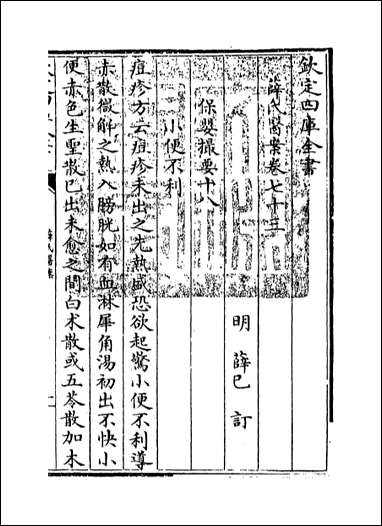 欽定四庫全書
薛氏醫案卷七十三
明 薛己 訂
保嬰撮要十八
小便不利
痘疹方云痘疹未出之先熱盛恐欲起驚小便不利導
赤散微解之熱入膀胱如有血淋犀角湯初出不快小
便赤色生聖散已出未愈之間白术散或五苓散加木